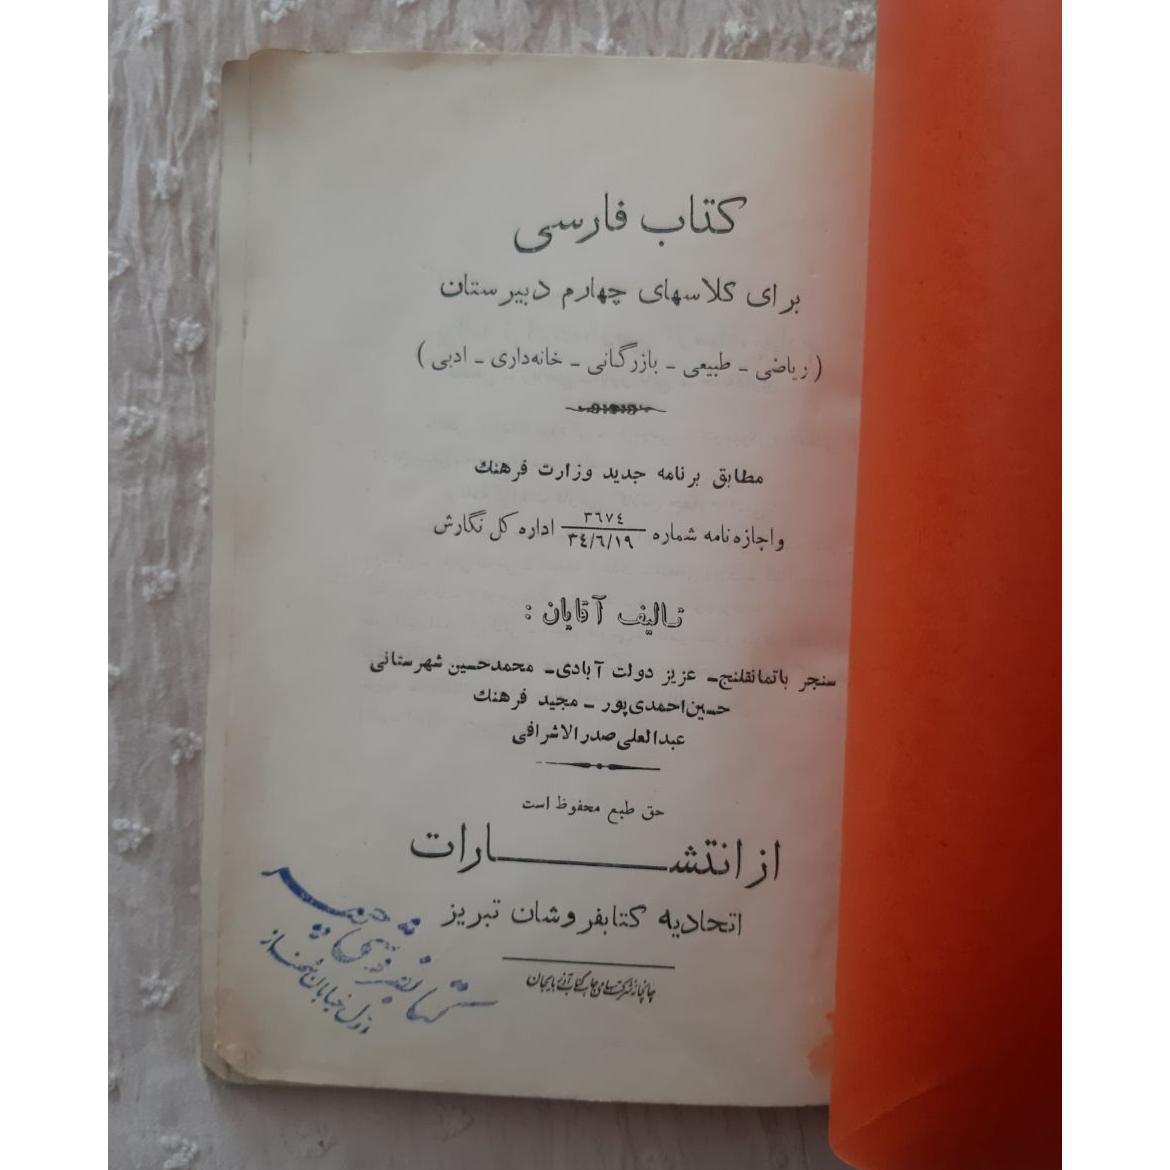 کتاب فارسی
برای کلاسهای چهارم دبیرستان
( ریاضی - طبیعی - بازرگانی - خانه‌داری - ادبی )
مطابق برنامه جدید وزارت فرهنك
واجازه‌نامه شماره ٣٦٧٤ / ٣٤/٦/١٩ اداره کل نگارش
تالیف آقایان :
سنجر باتمانقلنج- عزیز دولت آبادی- محمدحسین شهرستانی
حسین‌احمدی‌پور - مجید فرهنك
عبدالعلی صدرالاشرافی
حق طبع محفوظ است
از انتشـــــــارات
اتحادیه کتابفروشان تبریز
چاپخانه شرکت سهامی چاپ کتاب آذربایجان
کتابفروشی
اول خیابان شهناز